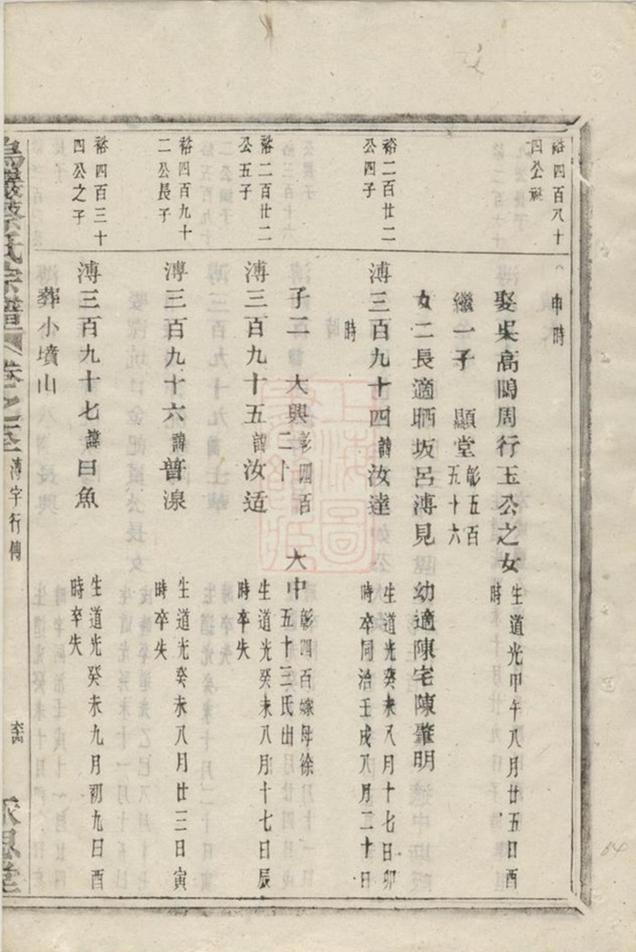 裕四百八十
四公祧
申時
娶吴高鴎周行玉公之女
生道光甲午八月廿五日酉
時
繼一子 顯堂
彰五百
五十六
女二長適晒坂呂溥見 幼適陳宅陳肇明
裕二百廿二
公四子
溥三百九十四諱汝達
生道光癸未八月十七日卯
時卒同治壬戌八月二十日
時
子二 大興
彰四百
二十
大中
彰四百嫁母徐
五十三氏出
裕二百廿二
公五子
溥三百九十五諱汝适
生道光癸未八月十七日辰
時卒失
裕四百九十
二公長子
溥三百九十六諱普湶
生道光癸未八月廿三日寅
時卒失
裕四百三十
四公之子
溥三百九十七諱曰魚
生道光癸未九月初九日酉
時卒失
葬小墳山
氏宗譜 卷之 溥字行傳